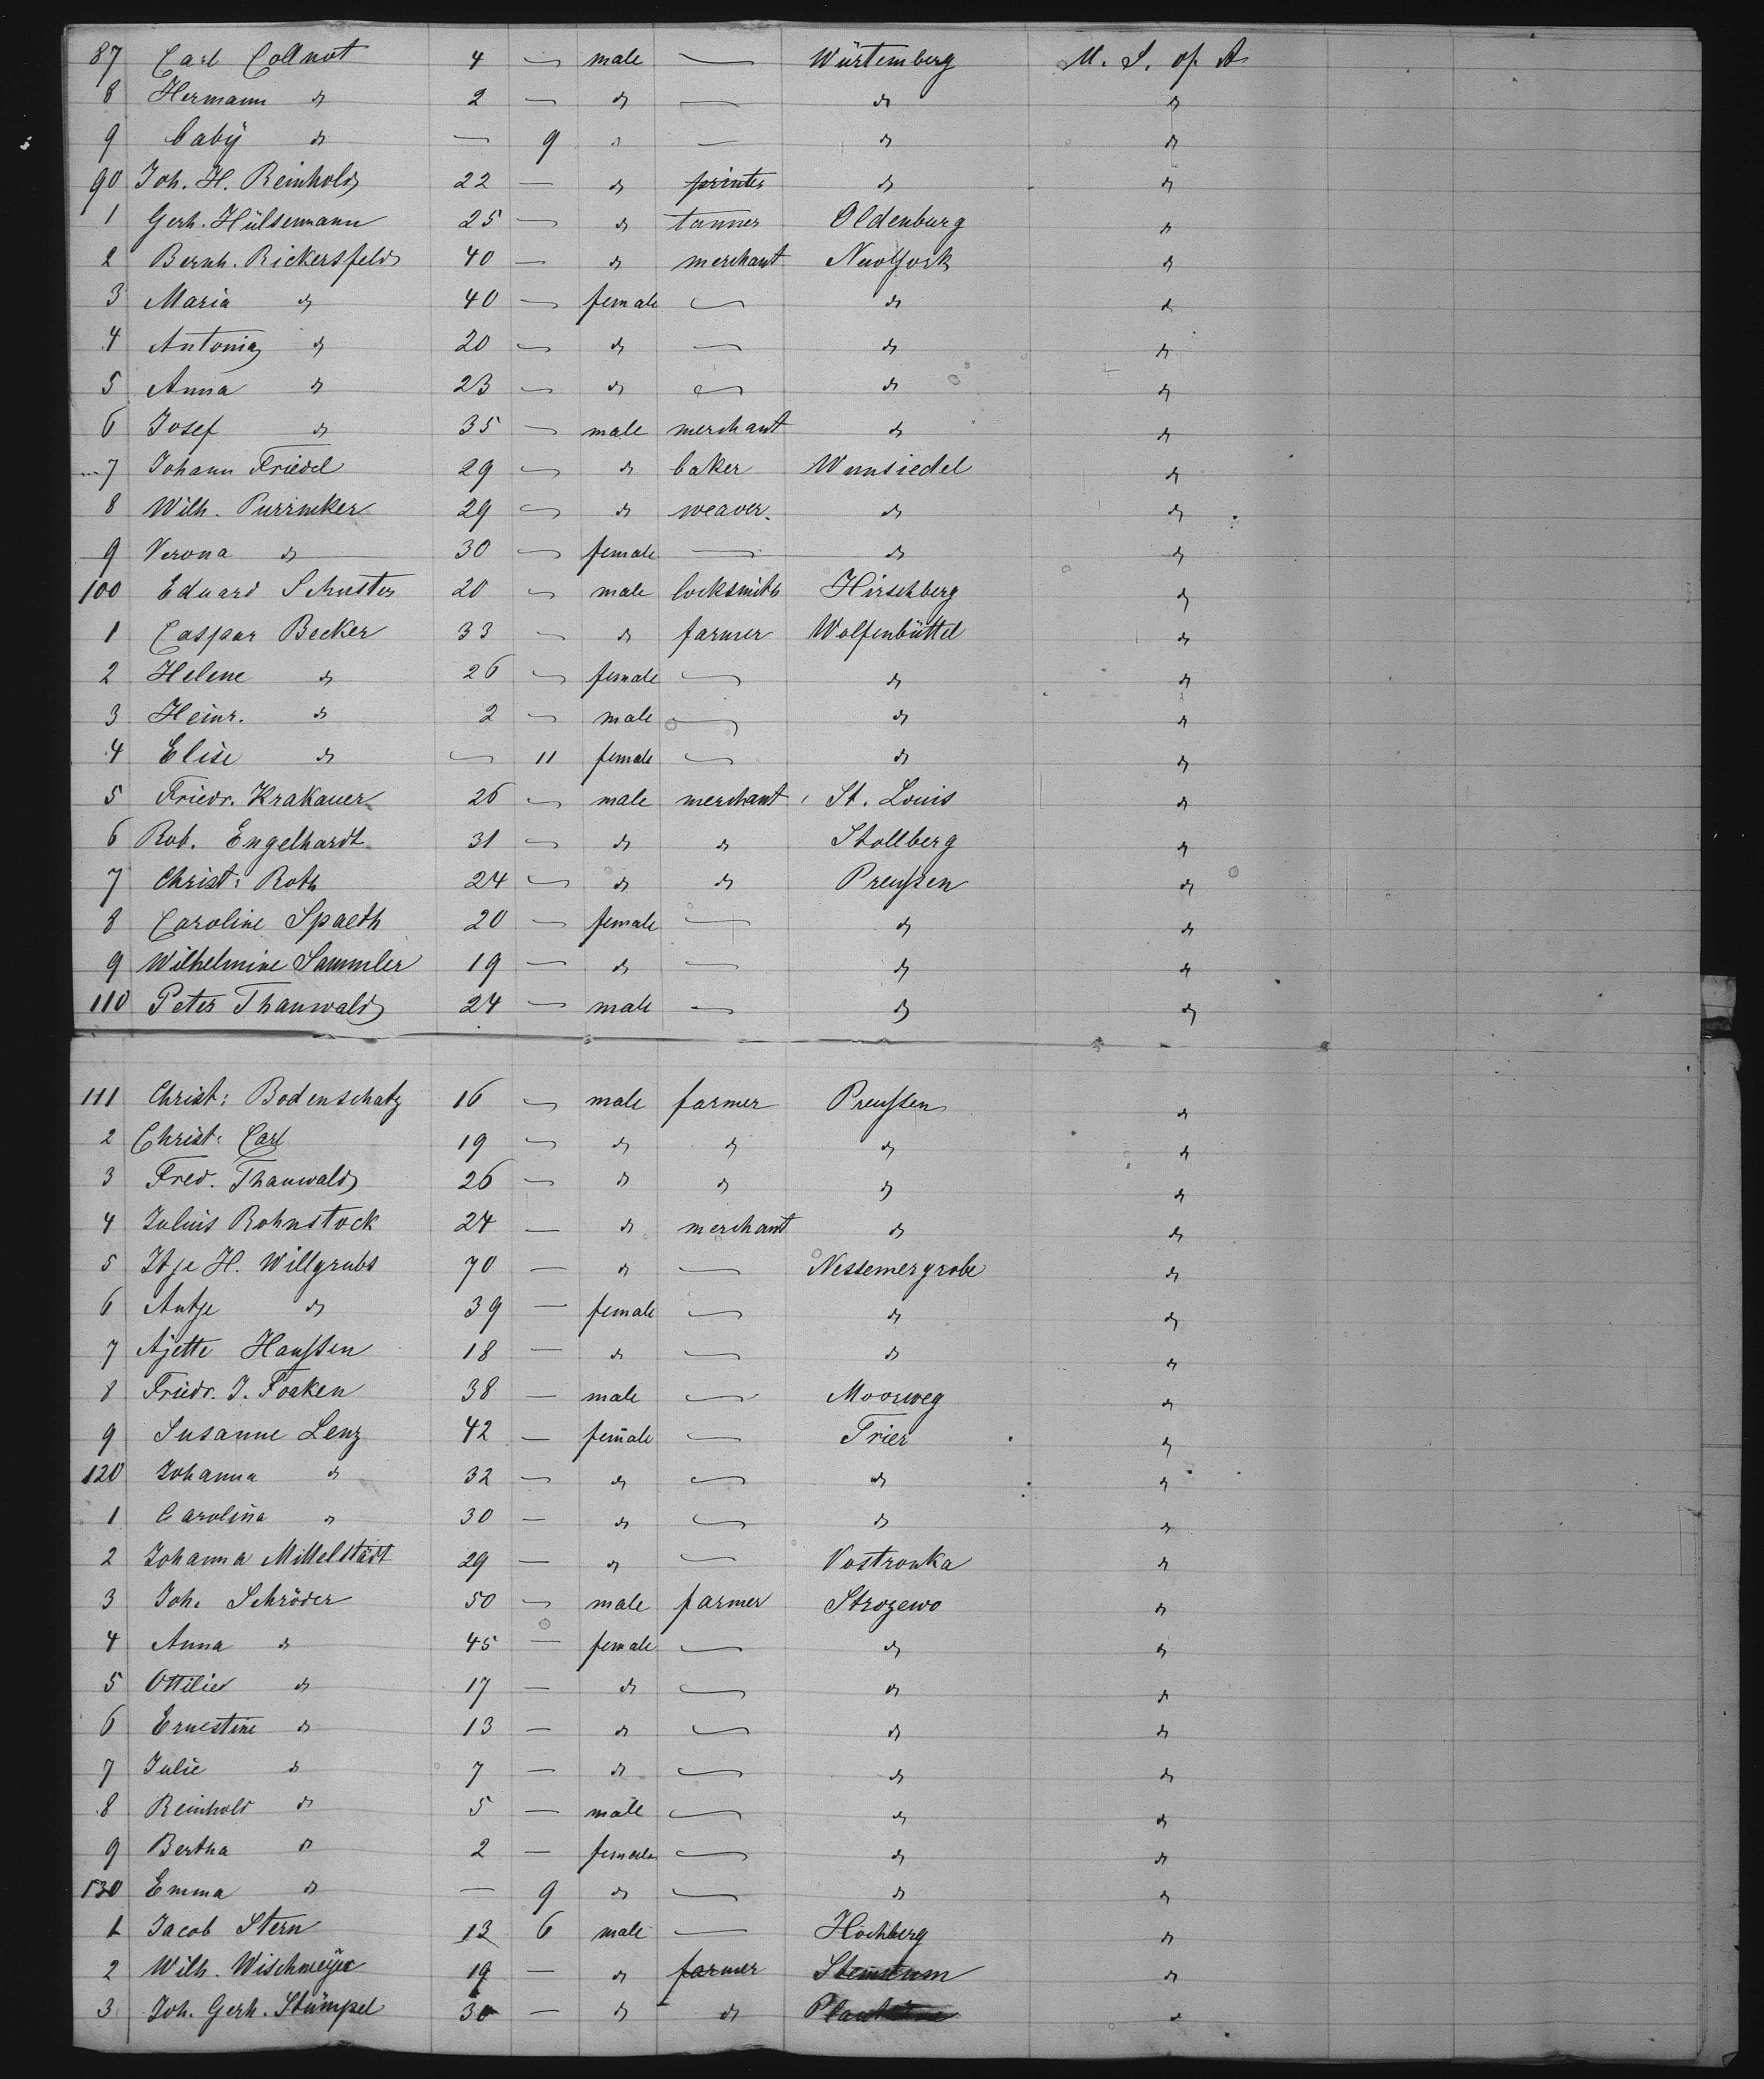 87 Carl Collnot 4 — male — Würtemberg U. S. of A
8 Hermann do 2 — do — do do
9 baby do — 9 do — do do
90 Joh. H. Reinhold 22 — do printer do do
1 Gerh. Hülsemann 25 — do tanner Oldenburg do
2 Bernh. Rickersfeld 40 — do merchant NewYork do
3 Maria do 40 — female — do do
4 Antonia do 20 — do — do do
5 Anna do 23 — do — do do
6 Josef do 35 — male merchant do do
7 Johann Friedel 29 — do baker Wunsiedel do
8 Wilh. Purrucker 29 — do weaver. do do
9 Verona do 30 — female — do do
100 Eduard Schuster 20 — male locksmith Hirschberg do
1 Caspar Becker 33 — do farmer Wolfenbüttel do
2 Helene do 26 — female — do do
3 Heinr. do 2 — male — do do
4 Elise do — 11 female — do do
5 Friedr. Krakauer 26 — male merchant St. Louis do
6 Rob. Engelhardt 31 — do do Stollberg do
7 Christ: Roth 24 — do do Preußen do
8 Caroline Spaeth 20 — female — do do
9 Wilhelmine Sammler 19 — do — do do
110 Peter Thauwald 24 — male — do do
111 Christ: Bodenschatz 16 — male farmer Preußen do
2 Christ: Carl 19 — do do do do
3 Fred. Thauwald 26 — do do do do
4 Julius Rohnstock 24 — do merchant do do
5 Itje H. Willgrubs 70 — do — Nessemergrobe do
6 Antje do 39 — female — do do
7 Ajette Haußen 18 — do — do do
8 Friedr. J. Focken 38 — male — Moorweg do
9 Susanne Lenz 42 — female — Trier do
120 Johanna do 32 — do — do do
1 Carolina do 30 — do — do do
2 Johanna Mittelstädt 29 — do — Vostronka do
3 Joh. Schröder 50 — male farmer Strozewo do
4 Anna do 45 — female — do do
5 Ottilie do 17 — do — do do
6 Ernestine do 13 — do — do do
7 Julie do 7 — do — do do
8 Reinhold do 5 — male — do do
9 Bertha do 2 — female — do do
130 Emma do — 9 do — do do
1 Jacob Stern 13 6 male — Hochberg do
2 Wilh. Wischmeÿer 19 — do farmer do
3 Joh. Gerh. Stümpel 30 — do do do